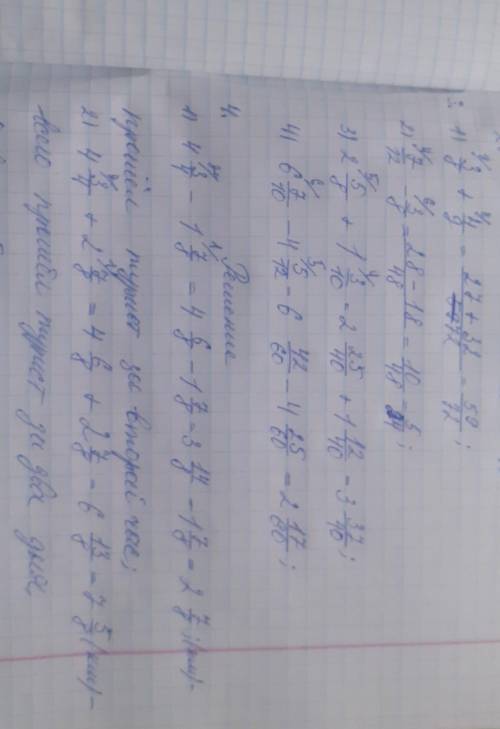 1) 3/8 + 4/9 = (27 + 32)/72 = 59/72;
2) 7/12 - 3/8 = (28 - 18)/48 = 10/48 = 5/24;
3) 2 5/8 + 1 3/10 = 2 25/40 + 1 12/40 = 3 37/40;
4) 6 7/10 - 4 5/12 = 6 42/60 - 4 25/60 = 2 17/60;
Решение
4.
1) 4 3/4 - 1 7/8 = 4 6/8 - 1 7/8 = 3 14/8 - 1 7/8 = 2 7/8 (км) -
прошёл турист за второй час;
2) 4 3/4 + 2 7/8 = 4 6/8 + 2 7/8 = 6 13/8 = 7 5/8 (км) -
всего прошёл турист за два